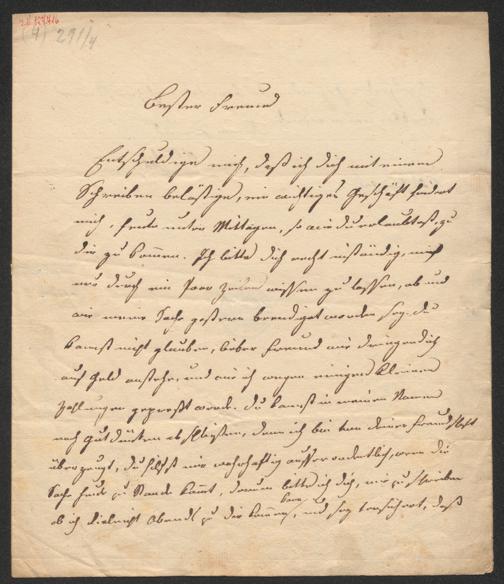 (4) 291/4
Bester Freund
Entschuldige noch, daß ich dich mit einem
Schreiben belästige, ein wichtiges Geschäft hindert
mich, heute unter Mittagen, so wie du erlaubtest, zu
dir zu kommen. Ich bitte dich recht inständig, mich
nur durch ein Paar Zeilen wissen zu lassen, ob und
wie meine Sache gestern beendiget worden sey. du
kannst nicht glauben, lieber Freund wie dringendlich
auf Geld anstehe, und wie ich wegen einigen kleinen
Zahlungen gepreßt werde. du kannst in meinem Namen
nach Gutdünken abschließen, denn ich bin von deiner Freundschaft
überzeugt, du hilfst mir wahrhaftig ausserordentlich, wenn die
Sache heute zu Stande kömmt, darum bitte ich dich, mir zu schreiben
ob ich vielleicht Abends zu dir kommen kann, und sey versichert, daß